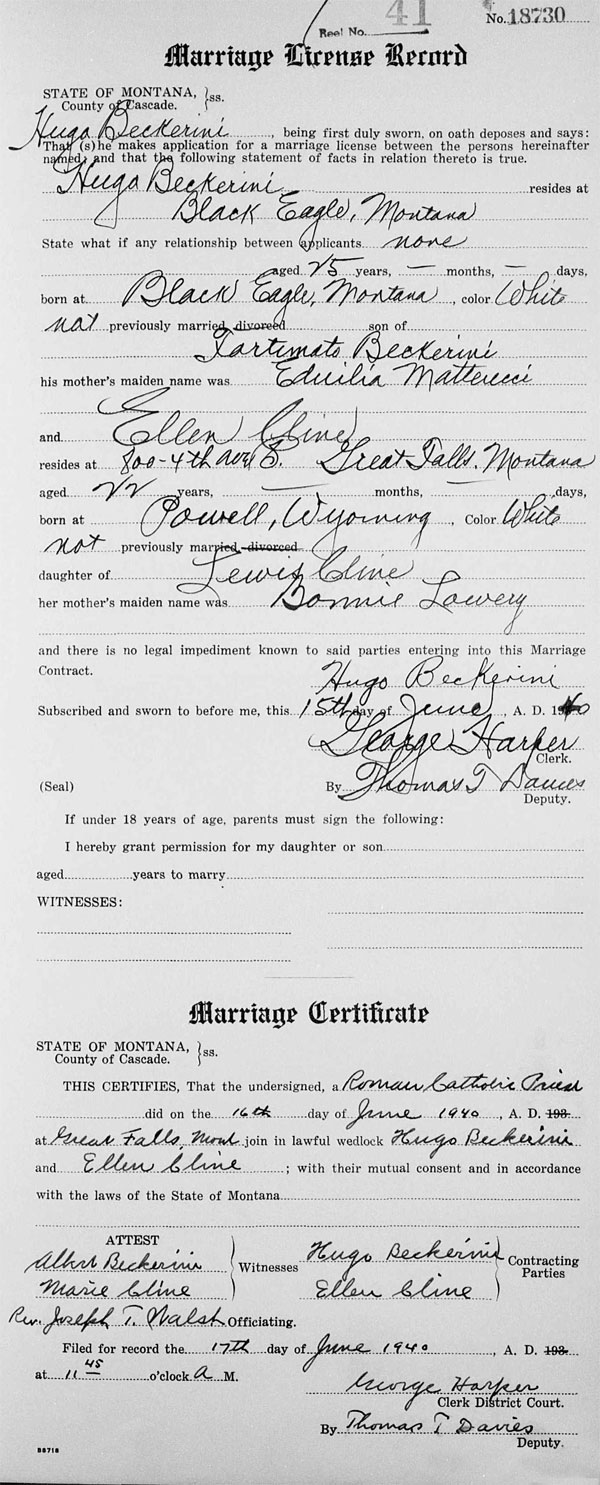 41
Reel No.
No. 18730
Marriage License Record
STATE OF MONTANA, }ss.
County of Cascade.
Hugo Beckerini, being first duly sworn, on oath deposes and says:
That (s)he makes application for a marriage license between the persons hereinafter
named, and that the following statement of facts in relation thereto is true.
Hugo Beckerini resides at
Black Eagle, Montana
State what if any relationship between applicants none
aged 25 years, — months, — days,
born at Black Eagle, Montana, color White
not previously married, divorced son of
Fortunato Beckerini
his mother's maiden name was Matteucci
and Ellen Cline
resides at 800-4th Ave S. Great Falls, Montana
aged 22 years, — months, — days,
born at Powell, Wyoming, Color White
not previously married-divorced
daughter of Lewis Cline
her mother's maiden name was Bonnie Lowery
and there is no legal impediment known to said parties entering into this Marriage
Contract.
Hugo Beckerini
Subscribed and sworn to before me, this 15th day of June, A. D. 1940
George Harper
Clerk.
(Seal) By Thomas T Davies
Deputy.
If under 18 years of age, parents must sign the following:
I hereby grant permission for my daughter or son
aged years to marry
WITNESSES:
Marriage Certificate
STATE OF MONTANA, }ss.
County of Cascade.
THIS CERTIFIES, That the undersigned, a Roman Catholic Priest
did on the 16th day of June 1940, A. D. 193
at Great Falls, Mont join in lawful wedlock Hugo Beckerini
and Ellen Cline; with their mutual consent and in accordance
with the laws of the State of Montana
ATTEST
Albert Beckerini Witnesses Hugo Beckerini Contracting
Marie Cline Ellen Cline Parties
Rev. Joseph T. Walsh Officiating.
Filed for record the 17th day of June 1940, A. D. 193
at 11 45 o'clock A M.
George Harper
Clerk District Court.
By Thomas T Davies
Deputy.